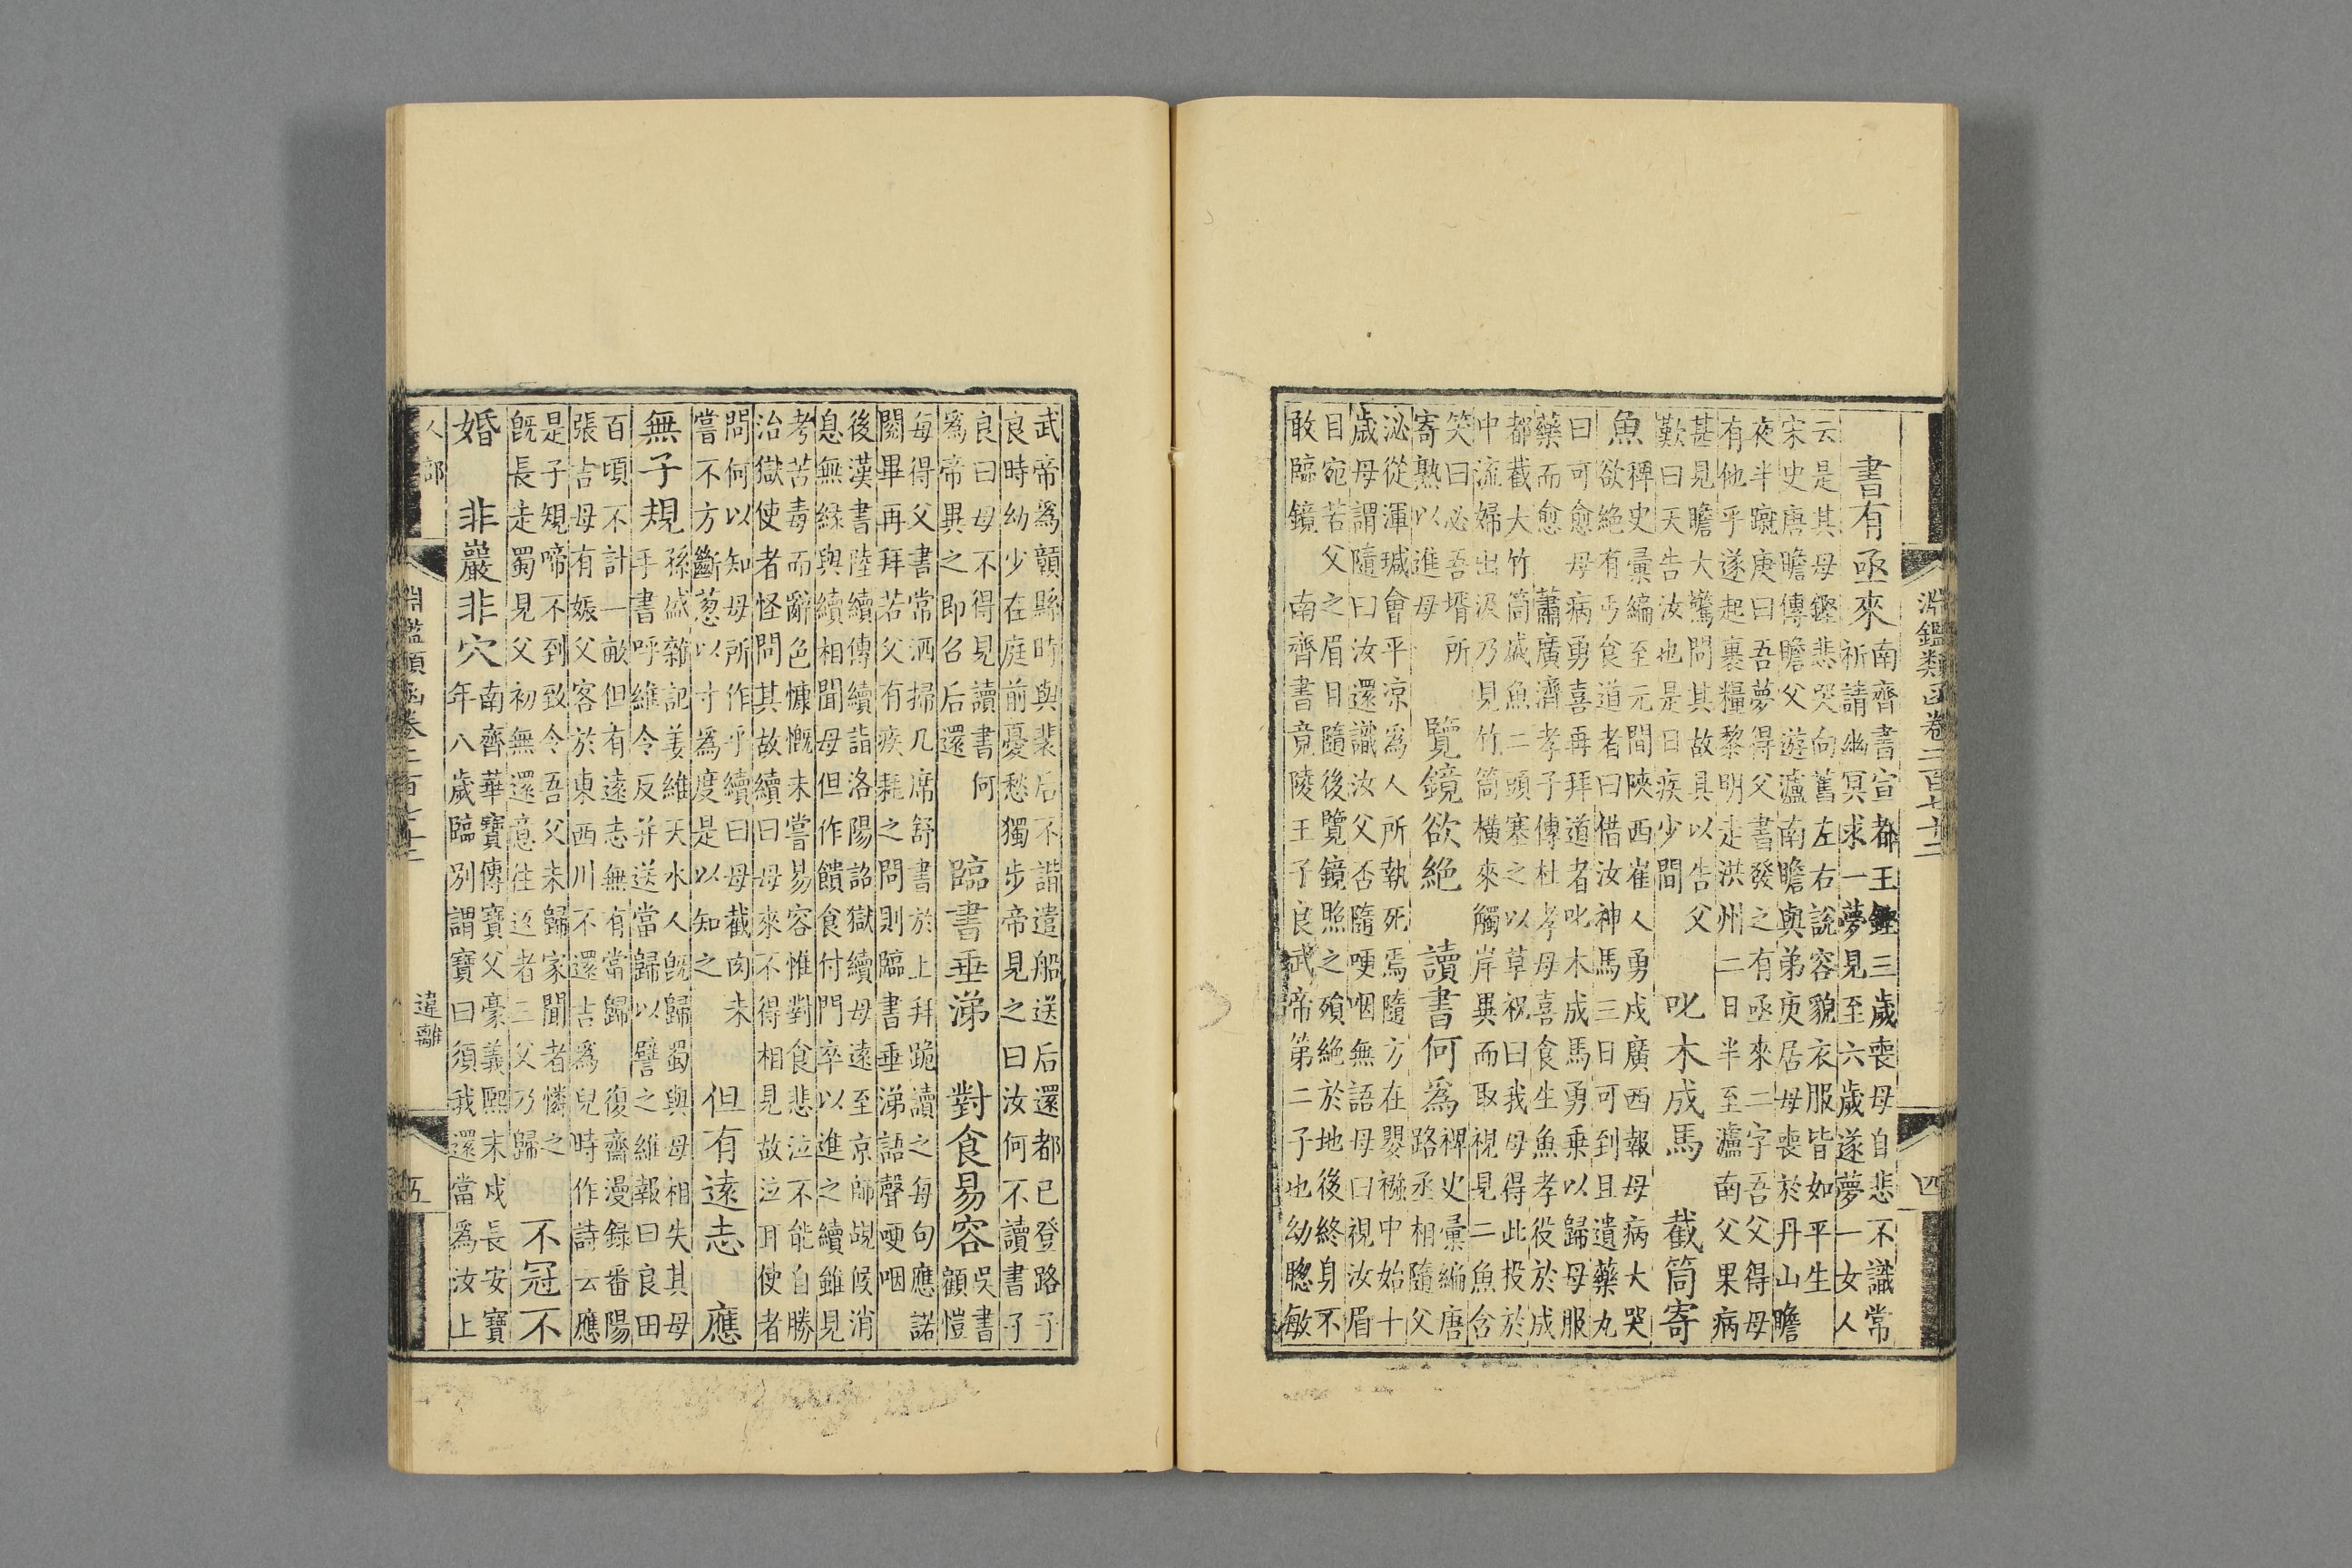 淵鑑類函卷二百七十三 四
書有亟來
南齊書宣都王鏗三歲喪母自悲不識常
祈請幽冥求一夢見至六歲遂夢一女人
云是其母鏗悲哭向舊左右說容貌衣服皆如平生
宋史唐瞻傳瞻父遊瀘南瞻與弟庚居母喪於丹山瞻
夜半蹴庚曰吾夢得父書發之有亟來二字吾父得母
有他乎遂起裹糧黎明走洪州二日半至瀘南父果病
甚見瞻大驚問其故具以告父
歎曰天告汝也是日疾少間
叱木成馬 截筒寄
魚
稗史彙編至元間陝西崔人勇戍廣西報母病大哭
欲絕有丐食道者曰借汝神馬三日可到且遺藥丸
曰可愈母病勇喜再拜道者叱木成馬勇乘以歸母服
藥而愈 蕭廣濟孝子傳杜孝母喜食生魚孝役於成
都截大竹筒盛魚二頭塞之以草祝曰我母得此投於
中流婦出汲乃見竹筒橫來觸岸異而取視見二魚含
笑曰必吾壻所
寄熟以進母
覽鏡欲絕 讀書何爲
稗史彙編唐
路丞相隨父
泌從渾瑊會平涼爲人所執死焉隨方在嬰襁中始十
歲母謂隨曰汝還識汝父否隨哽咽無語母曰視汝眉
目宛若父之眉目隨後覽鏡照之殞絕於地後終身不
敢臨鏡 南齊書竟陵王子良武帝第二子也幼聰敏
武帝爲贛縣時與裴后不諧遣船送后還都已登路子
良時幼少在庭前憂愁獨步帝見之曰汝何不讀書子
良曰母不得見讀書何
爲帝異之即召后還
臨書垂涕 對食易容
吳書
顧愷
每得父書常洒掃几席舒書於上拜跪讀之每句應諾
閱畢再拜若父有疾耗之問則臨書垂涕語聲哽咽
後漢書陸續傳續詣洛陽詔獄續母遠至京師覘候消
息無緣與續相聞母但作饋食付門卒以進之續雖見
考苦毒而辭色慷慨未嘗易容惟對食悲泣不能自勝
治獄使者怪問其故續曰母來不得相見故泣耳使者
問何以知母所作乎續曰母截肉未
嘗不方斷葱以寸爲度是以知之
但有遠志 應
無子規
孫盛雜記姜維天水人旣歸蜀與母相失其母
手書呼維令反并送當歸以譬之維報曰良田
百頃不計一畝但有遠志無有當歸 復齋漫錄番陽
張吉母有娠父客於東西川不還吉爲兒時作詩云應
是子規啼不到致令吾父未歸家聞者憐之
旣長走蜀見父初無還意往返者三父乃歸
不冠不
婚 非巖非穴
南齊華寶傳寶父豪義熙末戍長安寶
年八歲臨別謂寶曰須我還當爲汝上
人部 淵鑑類函卷二百七十三 違離 五